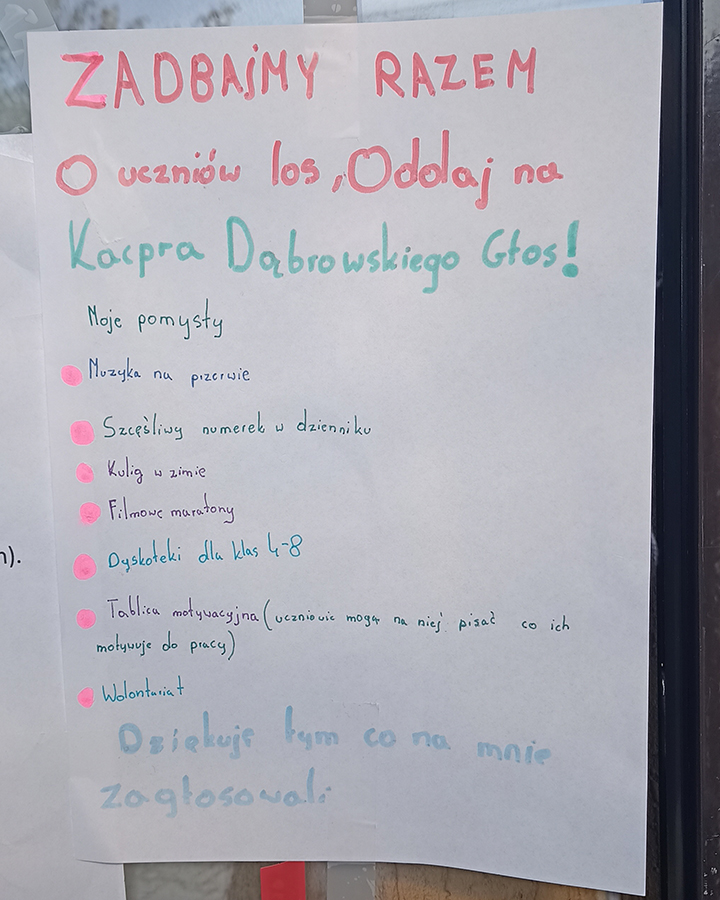 ZADBAJMY RAZEM
O uczniów los, Oddaj na
Kacpra Dąbrowskiego Głos!
Moje pomysły
Muzyka na przerwie
Szczęśliwy numerek w dzienniku
Kulig w zimie
Filmowe maratony
Dyskoteki dla klas 4-8
Tablica motywacyjna (uczniowie mogą na niej pisać co ich
motywuje do pracy)
Wolontariat
Dziękuje tym co na mnie
zagłosowali
n).